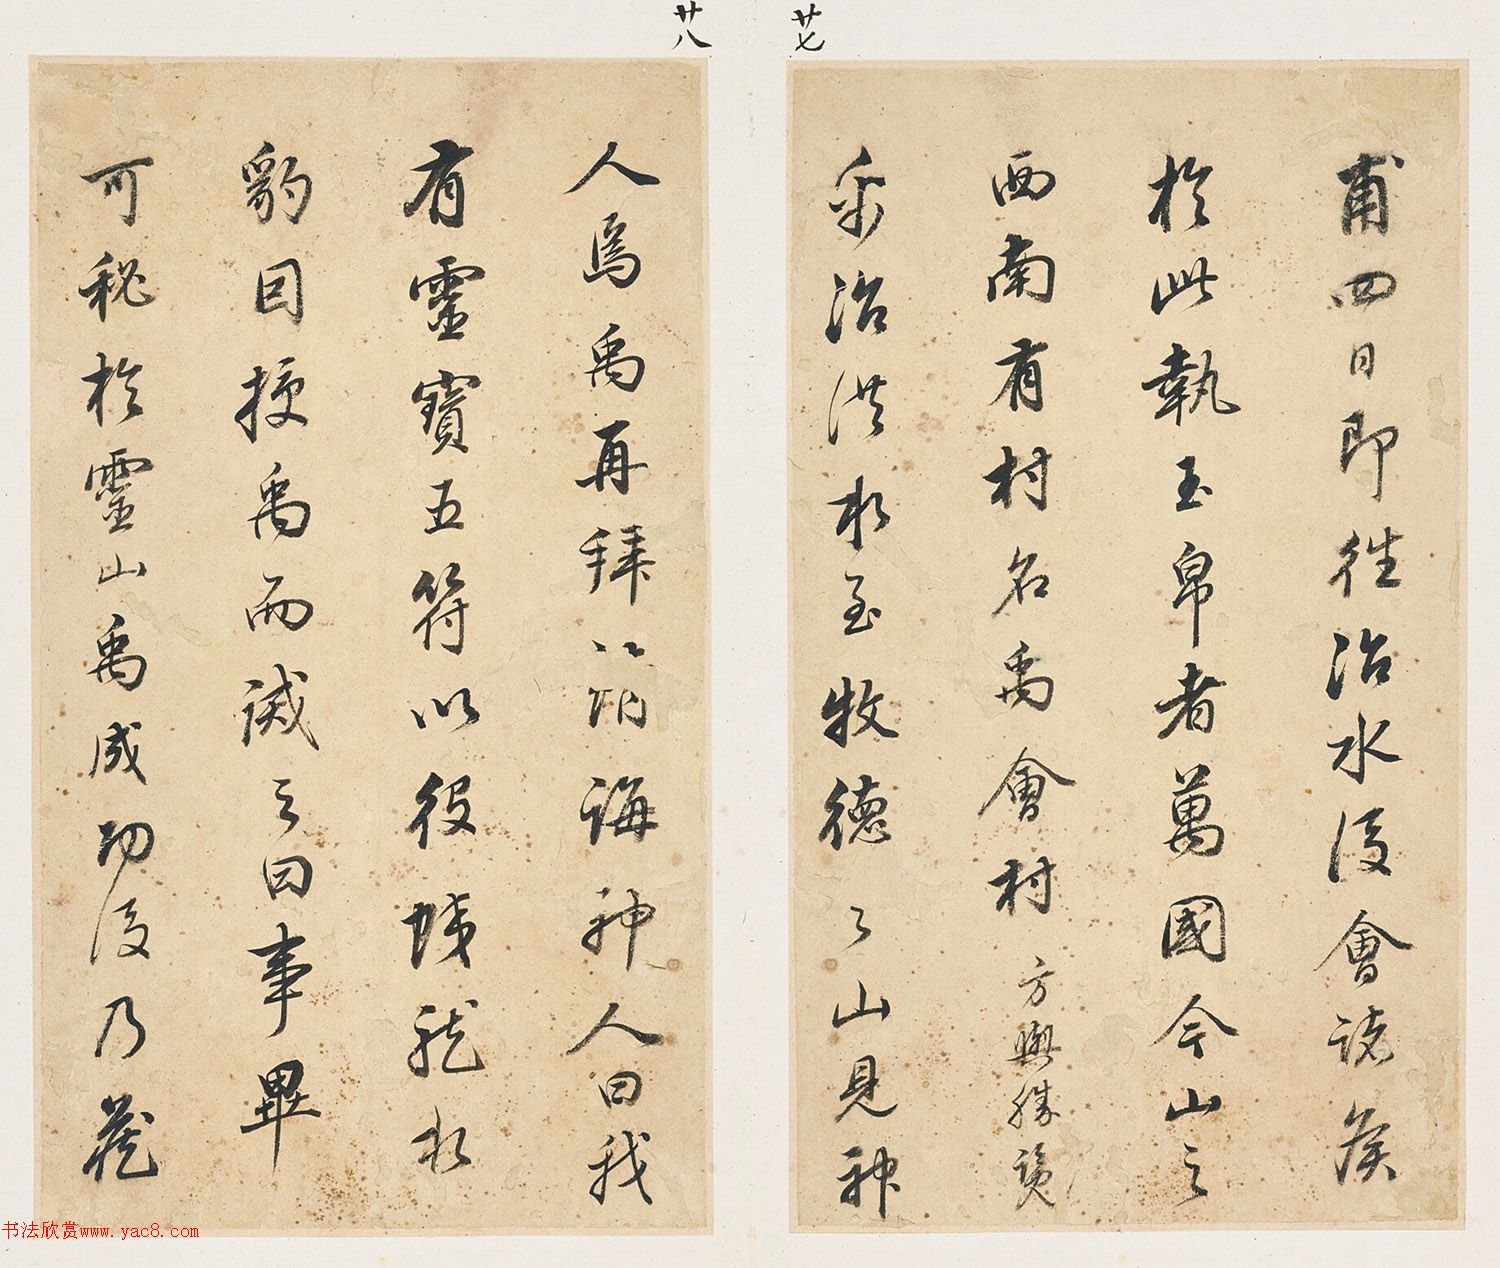 廿七
甫四日即往治水後會諸侯
於此執玉帛者萬國今山之
西南有村名禹會村方輿勝覽
禹治洪水至牧德之山見神
廿八
人焉禹再拜請誨神人曰我
有靈寶五符以役蛟龍水
豹因授禹而誡之曰事畢
可秘於靈山禹成功後乃藏
书法欣赏www.yac8.com